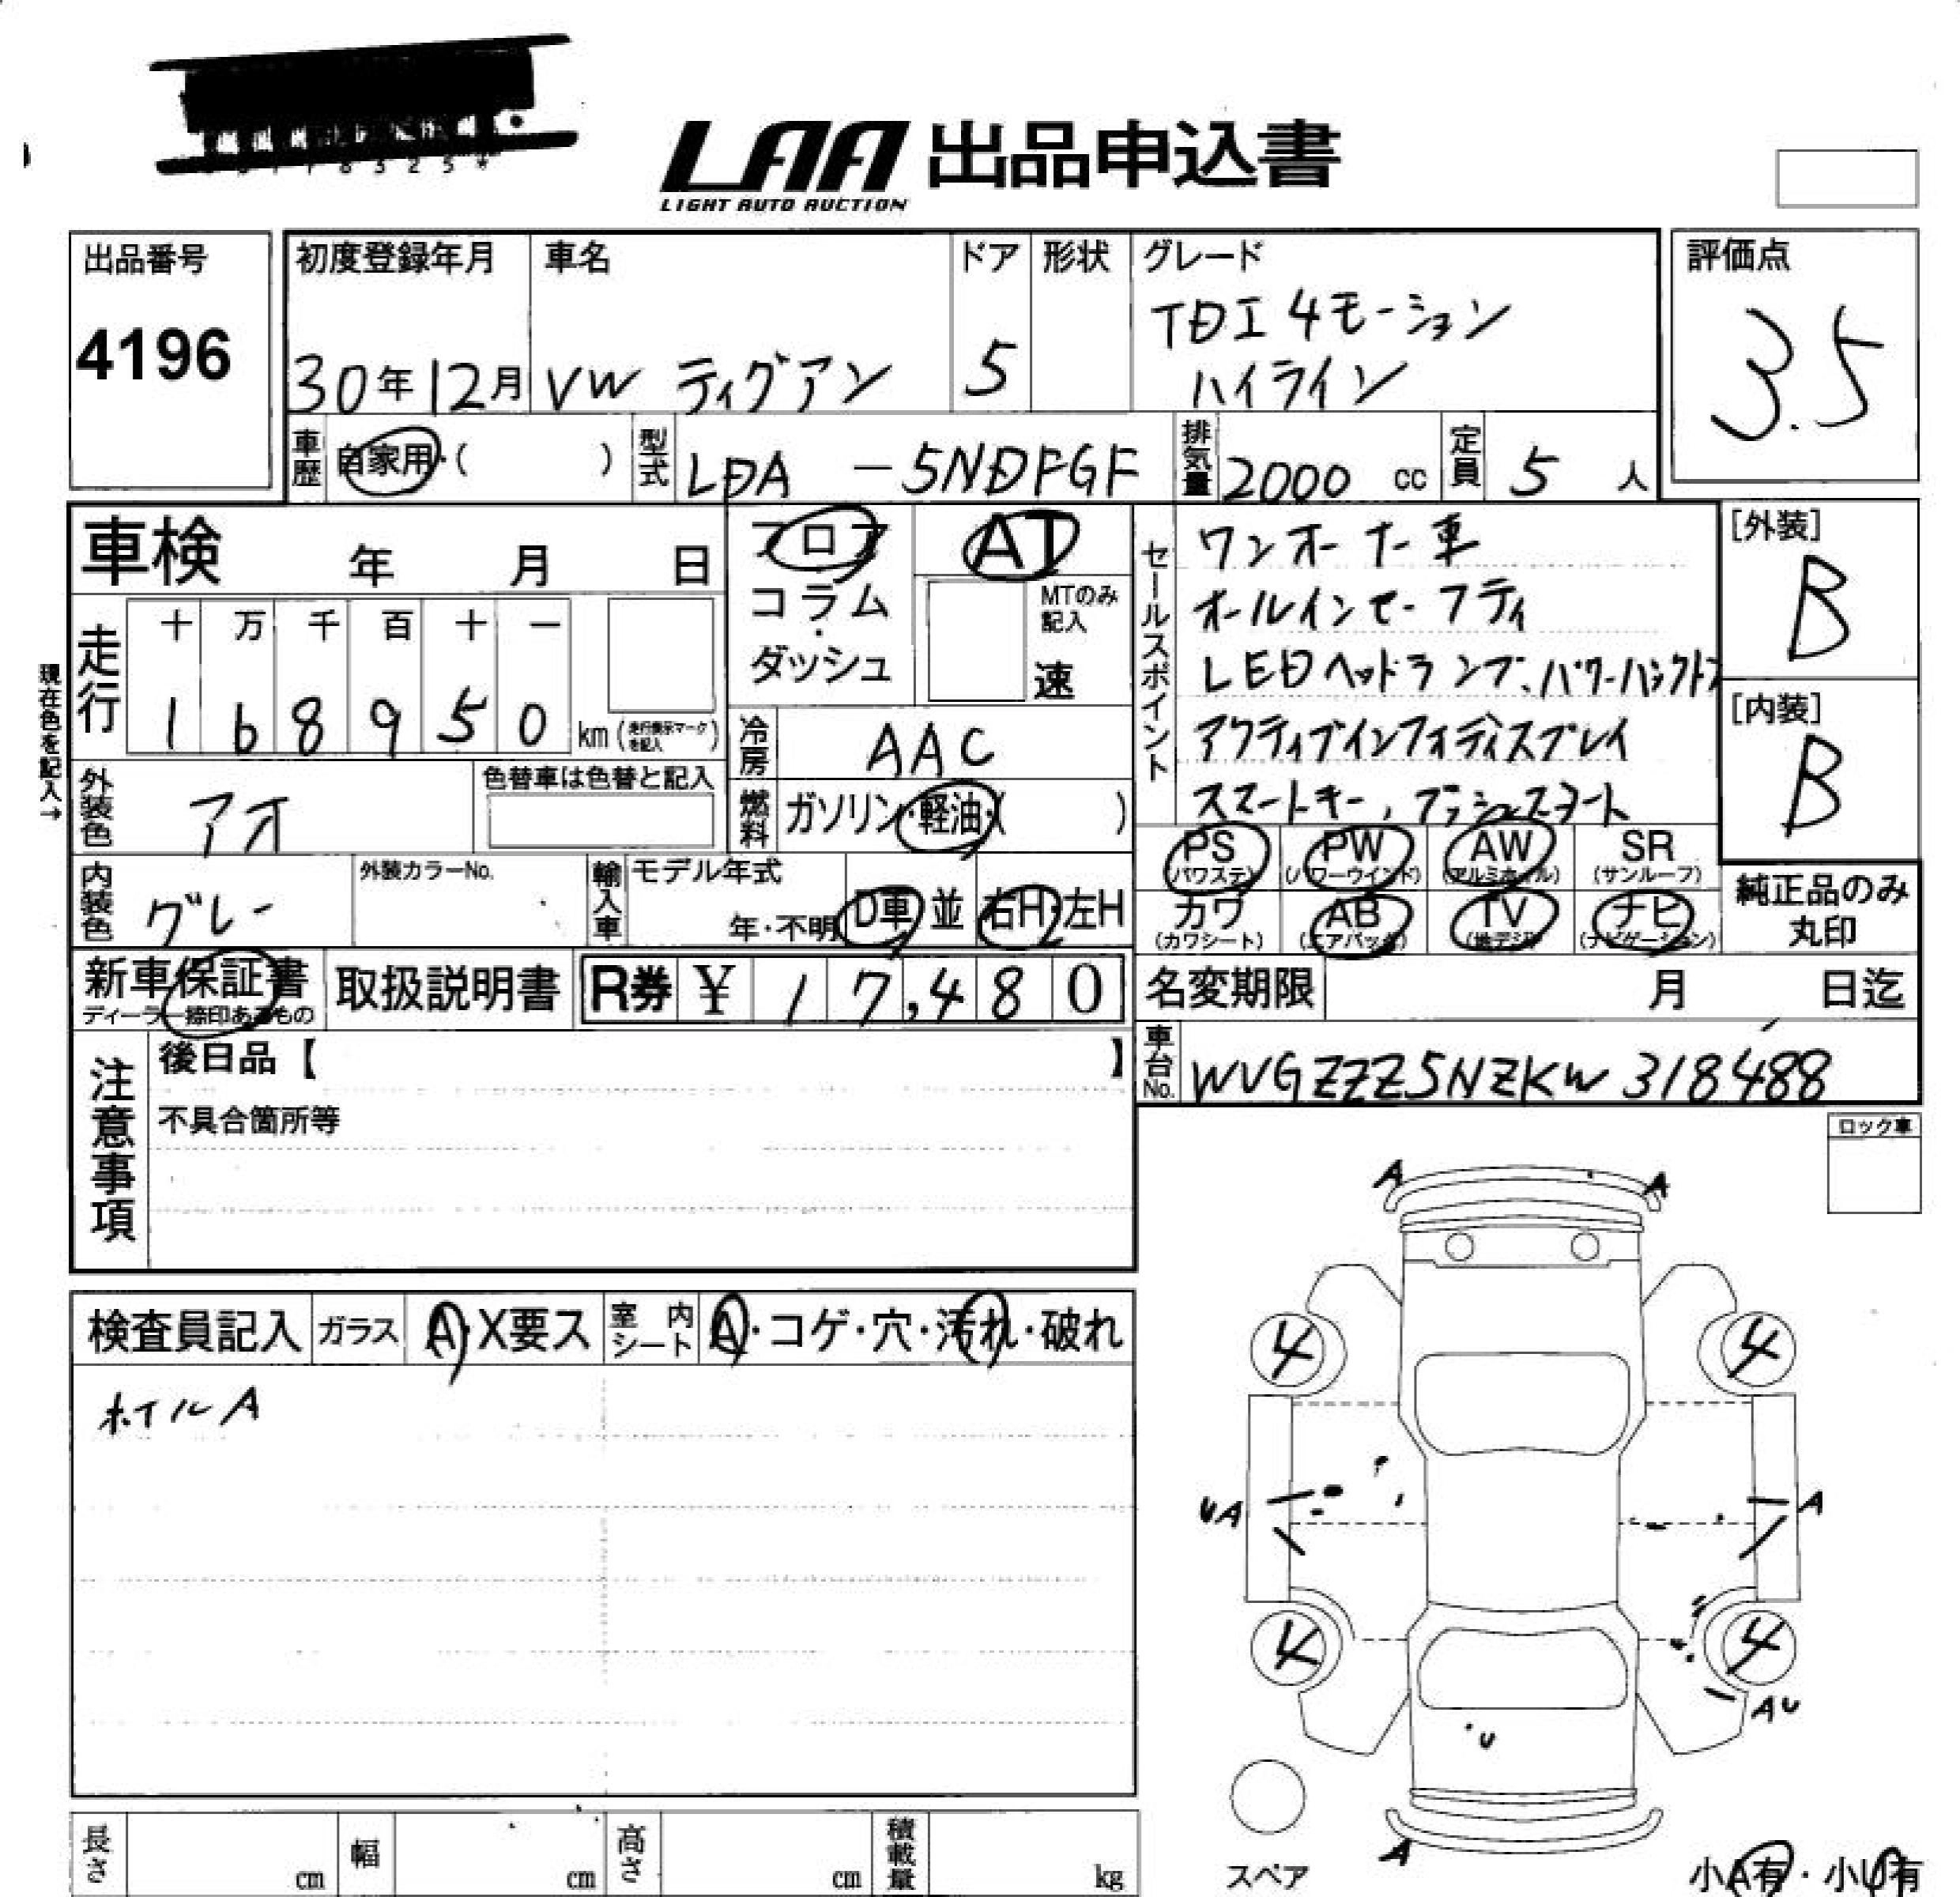 LAA 出品申込書
LIGHT AUTO AUCTION
出品番号
4196
初度登録年月
30年12月
車名
VW ティグアン
ドア
5
形状
グレード
TDI 4モーション
ハイライン
評価点
3.5
車歴
自家用・( )
型式
LDA -5NDFGF
排気量
2000 cc
定員
5 人
車検 年 月 日
フロア
コラム
・
ダッシュ
AT
MTのみ
記入
速
セールスポイント
ワンオーナー車
オールインセーフティ
LEDヘッドランプ、パワーバックドア
アクティブインフォディスプレイ
スマートキー、プッシュスタート
[外装]
B
[内装]
B
現在色を記入→
走行
十 万 千 百 十 一
1 6 8 9 5 0 km (走行表示マークを記入)
冷房
AAC
外装色
アオ
色替車は色替と記入
燃料
ガソリン・軽油・( )
内装色
グレー
外装カラーNo.
輸入車
モデル年式
年・不明
D車 並
右H・左H
PS
(パワステ)
PW
(パワーウインド)
AW
(アルミホイル)
SR
(サンルーフ)
カワ
(カワシート)
AB
(エアバック)
TV
(地デジ)
ナビ
(ナビゲーション)
純正品のみ
丸印
新車保証書
ディーラー捺印あるもの
取扱説明書
R券 ¥ 17,480
名変期限 月 日迄
車台No.
WVGZZZ5NZKW318488
注意事項
後日品【 】
不具合箇所等
ロック車
検査員記入
ガラス
A・X要ス
室内シート
A・コゲ・穴・汚れ・破れ
ホイルA
A A
4 4
UA A
4 4
AU
U
A
スペア
小A有・小U有
長さ cm
幅 cm
高さ cm
積載量 kg